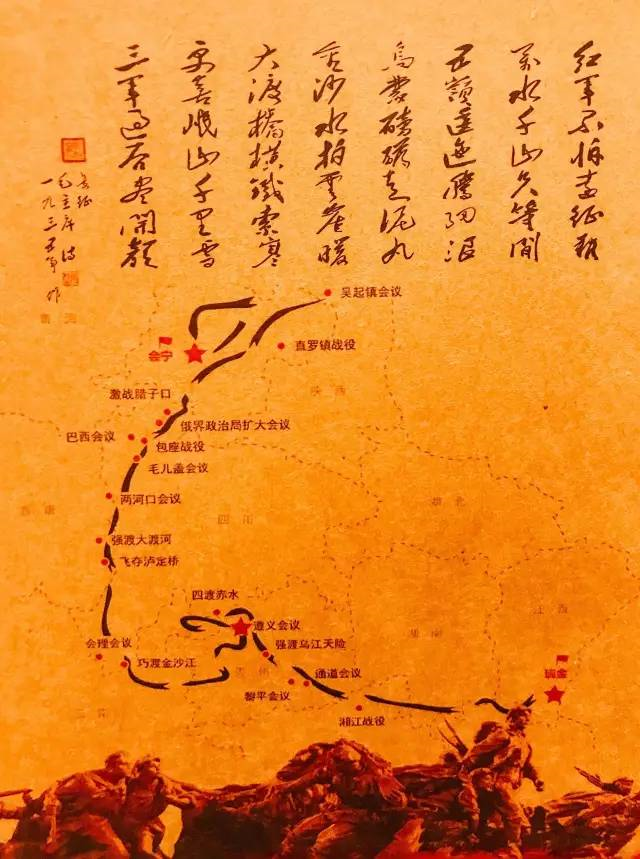 紅軍不怕遠征難
萬水千山只等閒
五嶺逶迤騰細浪
烏蒙磅礴走泥丸
金沙水拍雲崖暖
大渡橋橫鐵索寒
更喜岷山千里雪
三軍過后盡開顏
長征
毛主席詩
一九三五年作
吴起镇会议
会宁
直罗镇战役
陕西
激战腊子口
俄界政治局扩大会议
巴西会议
包座战役
毛儿盖会议
两河口会议
湖北
西康
四川
强渡大渡河
飞夺泸定桥
四渡赤水
遵义会议
江西
湖南
会理会议
强渡乌江天险
巧渡金沙江
贵州
通道会议
瑞金
黎平会议
湘江战役